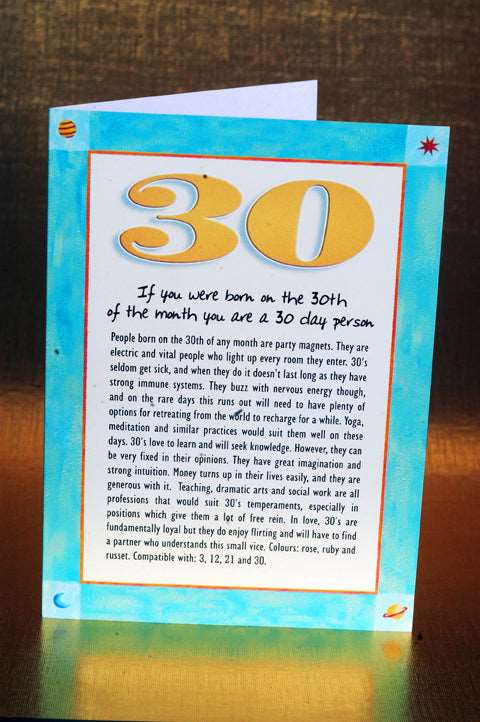 30
If you were born on the 30th
of the month you are a 30 day person
People born on the 30th of any month are party magnets. They are
electric and vital people who light up every room they enter. 30's
seldom get sick, and when they do it doesn't last long as they have
strong immune systems. They buzz with nervous energy though,
and on the rare days this runs out will need to have plenty of
options for retreating from the world to recharge for a while. Yoga,
meditation and similar practices would suit them well on these
days. 30's love to learn and will seek knowledge. However, they can
be very fixed in their opinions. They have great imagination and
strong intuition. Money turns up in their lives easily, and they are
generous with it. Teaching, dramatic arts and social work are all
professions that would suit 30's temperaments, especially in
positions which give them a lot of free rein. In love, 30's are
fundamentally loyal but they do enjoy flirting and will have to find
a partner who understands this small vice. Colours: rose, ruby and
russet. Compatible with: 3, 12, 21 and 30.